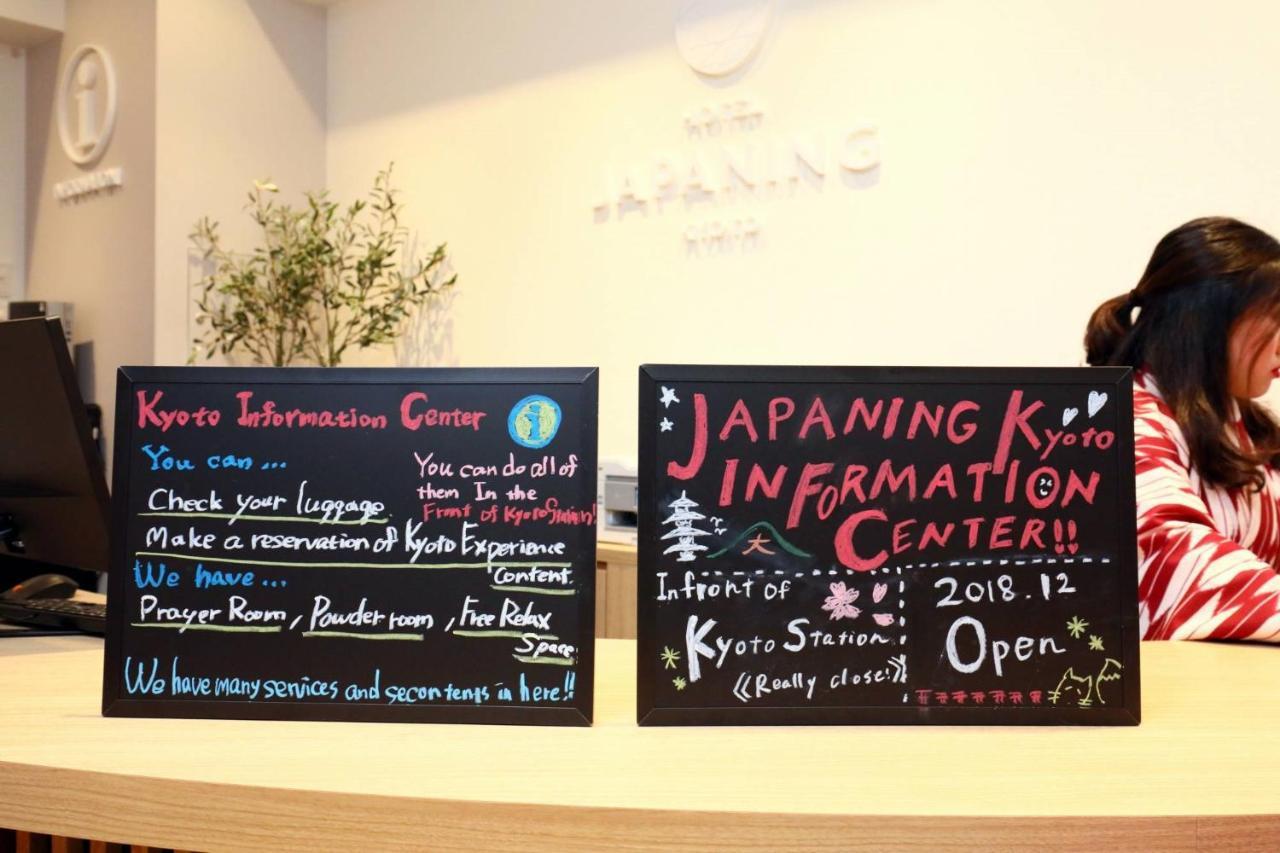 JAPANING
Kyoto Information Center
You can...
You can do all of
them In the
Front of Kyoto Station!
Check your luggage.
Make a reservation of Kyoto Experience
Content.
We have...
Prayer Room, Powder room, Free Relax
Space
We have many services and secontents in here!!
JAPANING Kyoto
INFORMATION
CENTER!!
大
Infront of
Kyoto Station
《Really close!》
2018.12
Open